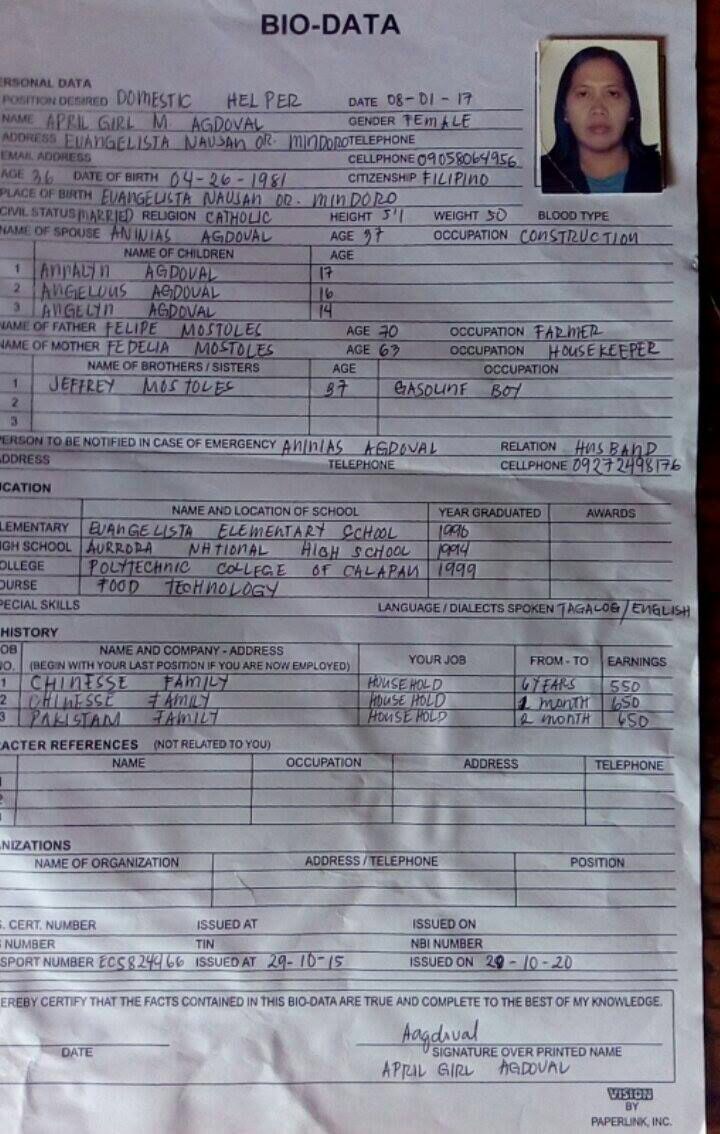 BIO-DATA
ERSONAL DATA
POSITION DESIRED DOMESTIC HELPER DATE 08-01-17
NAME APRIL GIRL M. AGDOVAL GENDER FEMALE
ADDRESS EVANGELISTA NAUSAN OR. MINDORO TELEPHONE
EMAIL ADDRESS CELLPHONE 09058064956
AGE 36 DATE OF BIRTH 04-26-1981 CITIZENSHIP FILIPINO
PLACE OF BIRTH EVANGELISTA NAUSAN OR. MINDORO
CIVIL STATUS MARRIED RELIGION CATHOLIC HEIGHT 5'1 WEIGHT 50 BLOOD TYPE
NAME OF SPOUSE ANINIAS AGDOVAL AGE 37 OCCUPATION CONSTRUCTION
NAME OF CHILDREN AGE
1 ANNALYN AGDOVAL 17
2 ANGELOUS AGDOVAL 16
3 ANGELYN AGDOVAL 14
NAME OF FATHER FELIPE MOSTOLES AGE 70 OCCUPATION FARMER
NAME OF MOTHER FEDELIA MOSTOLES AGE 63 OCCUPATION HOUSEKEEPER
NAME OF BROTHERS / SISTERS AGE OCCUPATION
1 JEFFREY MOSTOLES 37 GASOLINE BOY
2
3
PERSON TO BE NOTIFIED IN CASE OF EMERGENCY ANINIAS AGDOVAL RELATION HUSBAND
ADDRESS TELEPHONE CELLPHONE 09272498176
UCATION
NAME AND LOCATION OF SCHOOL YEAR GRADUATED AWARDS
LEMENTARY EVANGELISTA ELEMENTARY SCHOOL 1996
IGH SCHOOL AURRORA NATIONAL HIGH SCHOOL 1994
OLLEGE POLYTECHNIC COLLEGE OF CALAPAN 1999
OURSE FOOD TECHNOLOGY
PECIAL SKILLS LANGUAGE / DIALECTS SPOKEN TAGALOG / ENGLISH
HISTORY
OB NO. NAME AND COMPANY - ADDRESS (BEGIN WITH YOUR LAST POSITION IF YOU ARE NOW EMPLOYED) YOUR JOB FROM - TO EARNINGS
1 CHINESSE FAMILY HOUSEHOLD 6 YEARS 550
2 CHINESSE FAMILY HOUSEHOLD 1 MONTH 650
3 PAKISTAN FAMILY HOUSEHOLD 2 MONTH 650
RACTER REFERENCES (NOT RELATED TO YOU)
NAME OCCUPATION ADDRESS TELEPHONE
NIZATIONS
NAME OF ORGANIZATION ADDRESS / TELEPHONE POSITION
S. CERT. NUMBER ISSUED AT ISSUED ON
NUMBER TIN NBI NUMBER
SPORT NUMBER EC5824966 ISSUED AT 29-10-15 ISSUED ON 28-10-20
EREBY CERTIFY THAT THE FACTS CONTAINED IN THIS BIO-DATA ARE TRUE AND COMPLETE TO THE BEST OF MY KNOWLEDGE.
Aagdoval
DATE SIGNATURE OVER PRINTED NAME
APRIL GIRL AGDOVAL
VISION
BY
PAPERLINK, INC.